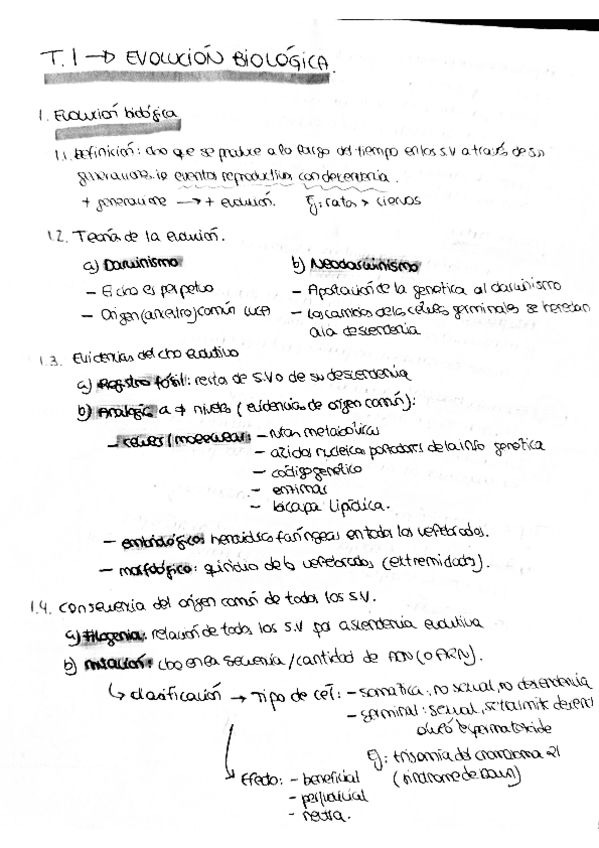 T.1 → EVOLUCIÓN BIOLÓGICA.
1. Evolución biológica
1.1. Definición: cbo que se produce a lo largo del tiempo en los s.v a través de sus
generaciones, ie eventos reproductivos con descendencia.
+ generaciones → + evolución. Ej: ratas > ciervos
1.2. Teoría de la evolución.
a) Darwinismo
- El cbo es perpetuo
- Origen (ancestro) común LUCA
b) Neodarwinismo
- Aportación de la genética al darwinismo
- Los cambios de las células germinales se heredan
a la descendencia
1.3. Evidencias del cbo evolutivo
a) Registro fósil: restos de s.v o de su descendencia
b) Analogía a ≠ niveles (evidencias de origen común):
- celular/molecular: - rutas metabólicas
- ácidos nucleicos portadores de la info genética
- código genético
- enzimas
- bicapa lipídica.
- embriológico: hendiduras faríngeas en todos los vertebrados.
- morfológico: quiridio de los vertebrados (extremidades).
1.4. Consecuencia del origen común de todos los s.v.
a) Filogenia: relación de todos los s.v por ascendencia evolutiva
b) Mutación: cbo en la secuencia/cantidad de ADN (o ARN).
↳ clasificación → Tipo de cél: - somática: no sexual, no descendencia
- germinal: sexual, se transmite descend
óvulo/espermatozoide
Ej: trisomía del cromosoma 21
(síndrome de Down)
Efecto: - beneficial
- perjudicial
- neutra.